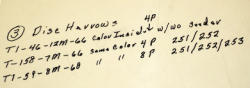 ③ Disc Harrows 4P
T1-46-12M-66 Color Inside w/wo Seeder
T-158-7M-66 Same Color 4P 251/252
T1-59-8M-68 " " 8P 251/252/253